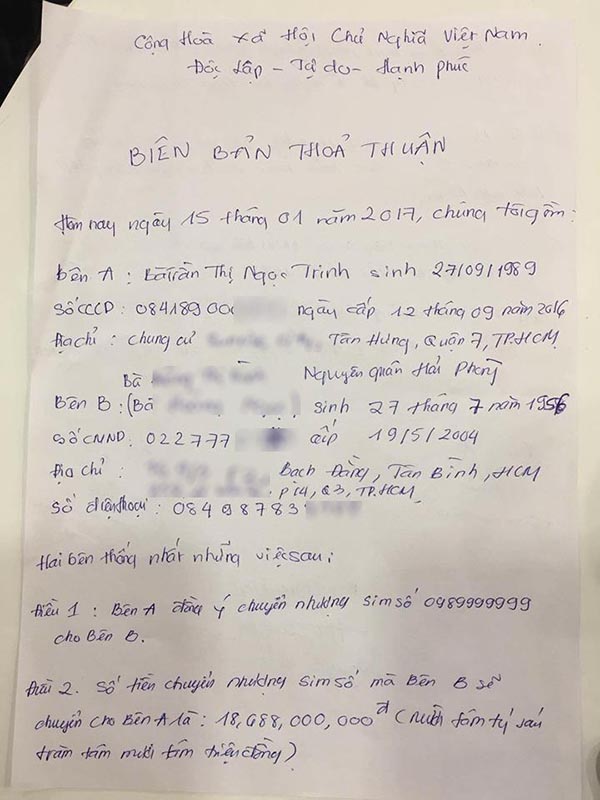 Cộng Hoà Xã Hội Chủ Nghĩa Việt Nam.
Độc Lập - Tự do - Hạnh phúc
BIÊN BẢN THOẢ THUẬN
Hôm nay ngày 15 tháng 01 năm 2017, chúng tôi gồm:
Bên A : Bà Trần Thị Ngọc Trinh sinh 27/09/1989
Số CCCD : 084189 00 ngày cấp 12 tháng 09 năm 2016
Địa chỉ : chung cư Tân Hưng, Quận 7, TP.HCM
Bà Nguyên quán Hải Phòng
Bên B : (Bà sinh 27 tháng 7 năm 1956
Số CNND : 022777 cấp 19/5/2004
Địa chỉ : Bạch Đằng, Tân Bình, HCM
P14, Q3, TP.HCM
Số điện thoại : 084 98783
Hai bên thống nhất những việc sau:
Điều 1 : Bên A đồng ý chuyển nhượng sim số 0989999999
cho Bên B.
Điều 2. Số tiền chuyển nhượng sim số mà Bên B sẽ
chuyển cho Bên A là : 18,688,000,000đ (Mười tám tỷ sáu
trăm tám mươi tám triệu đồng)